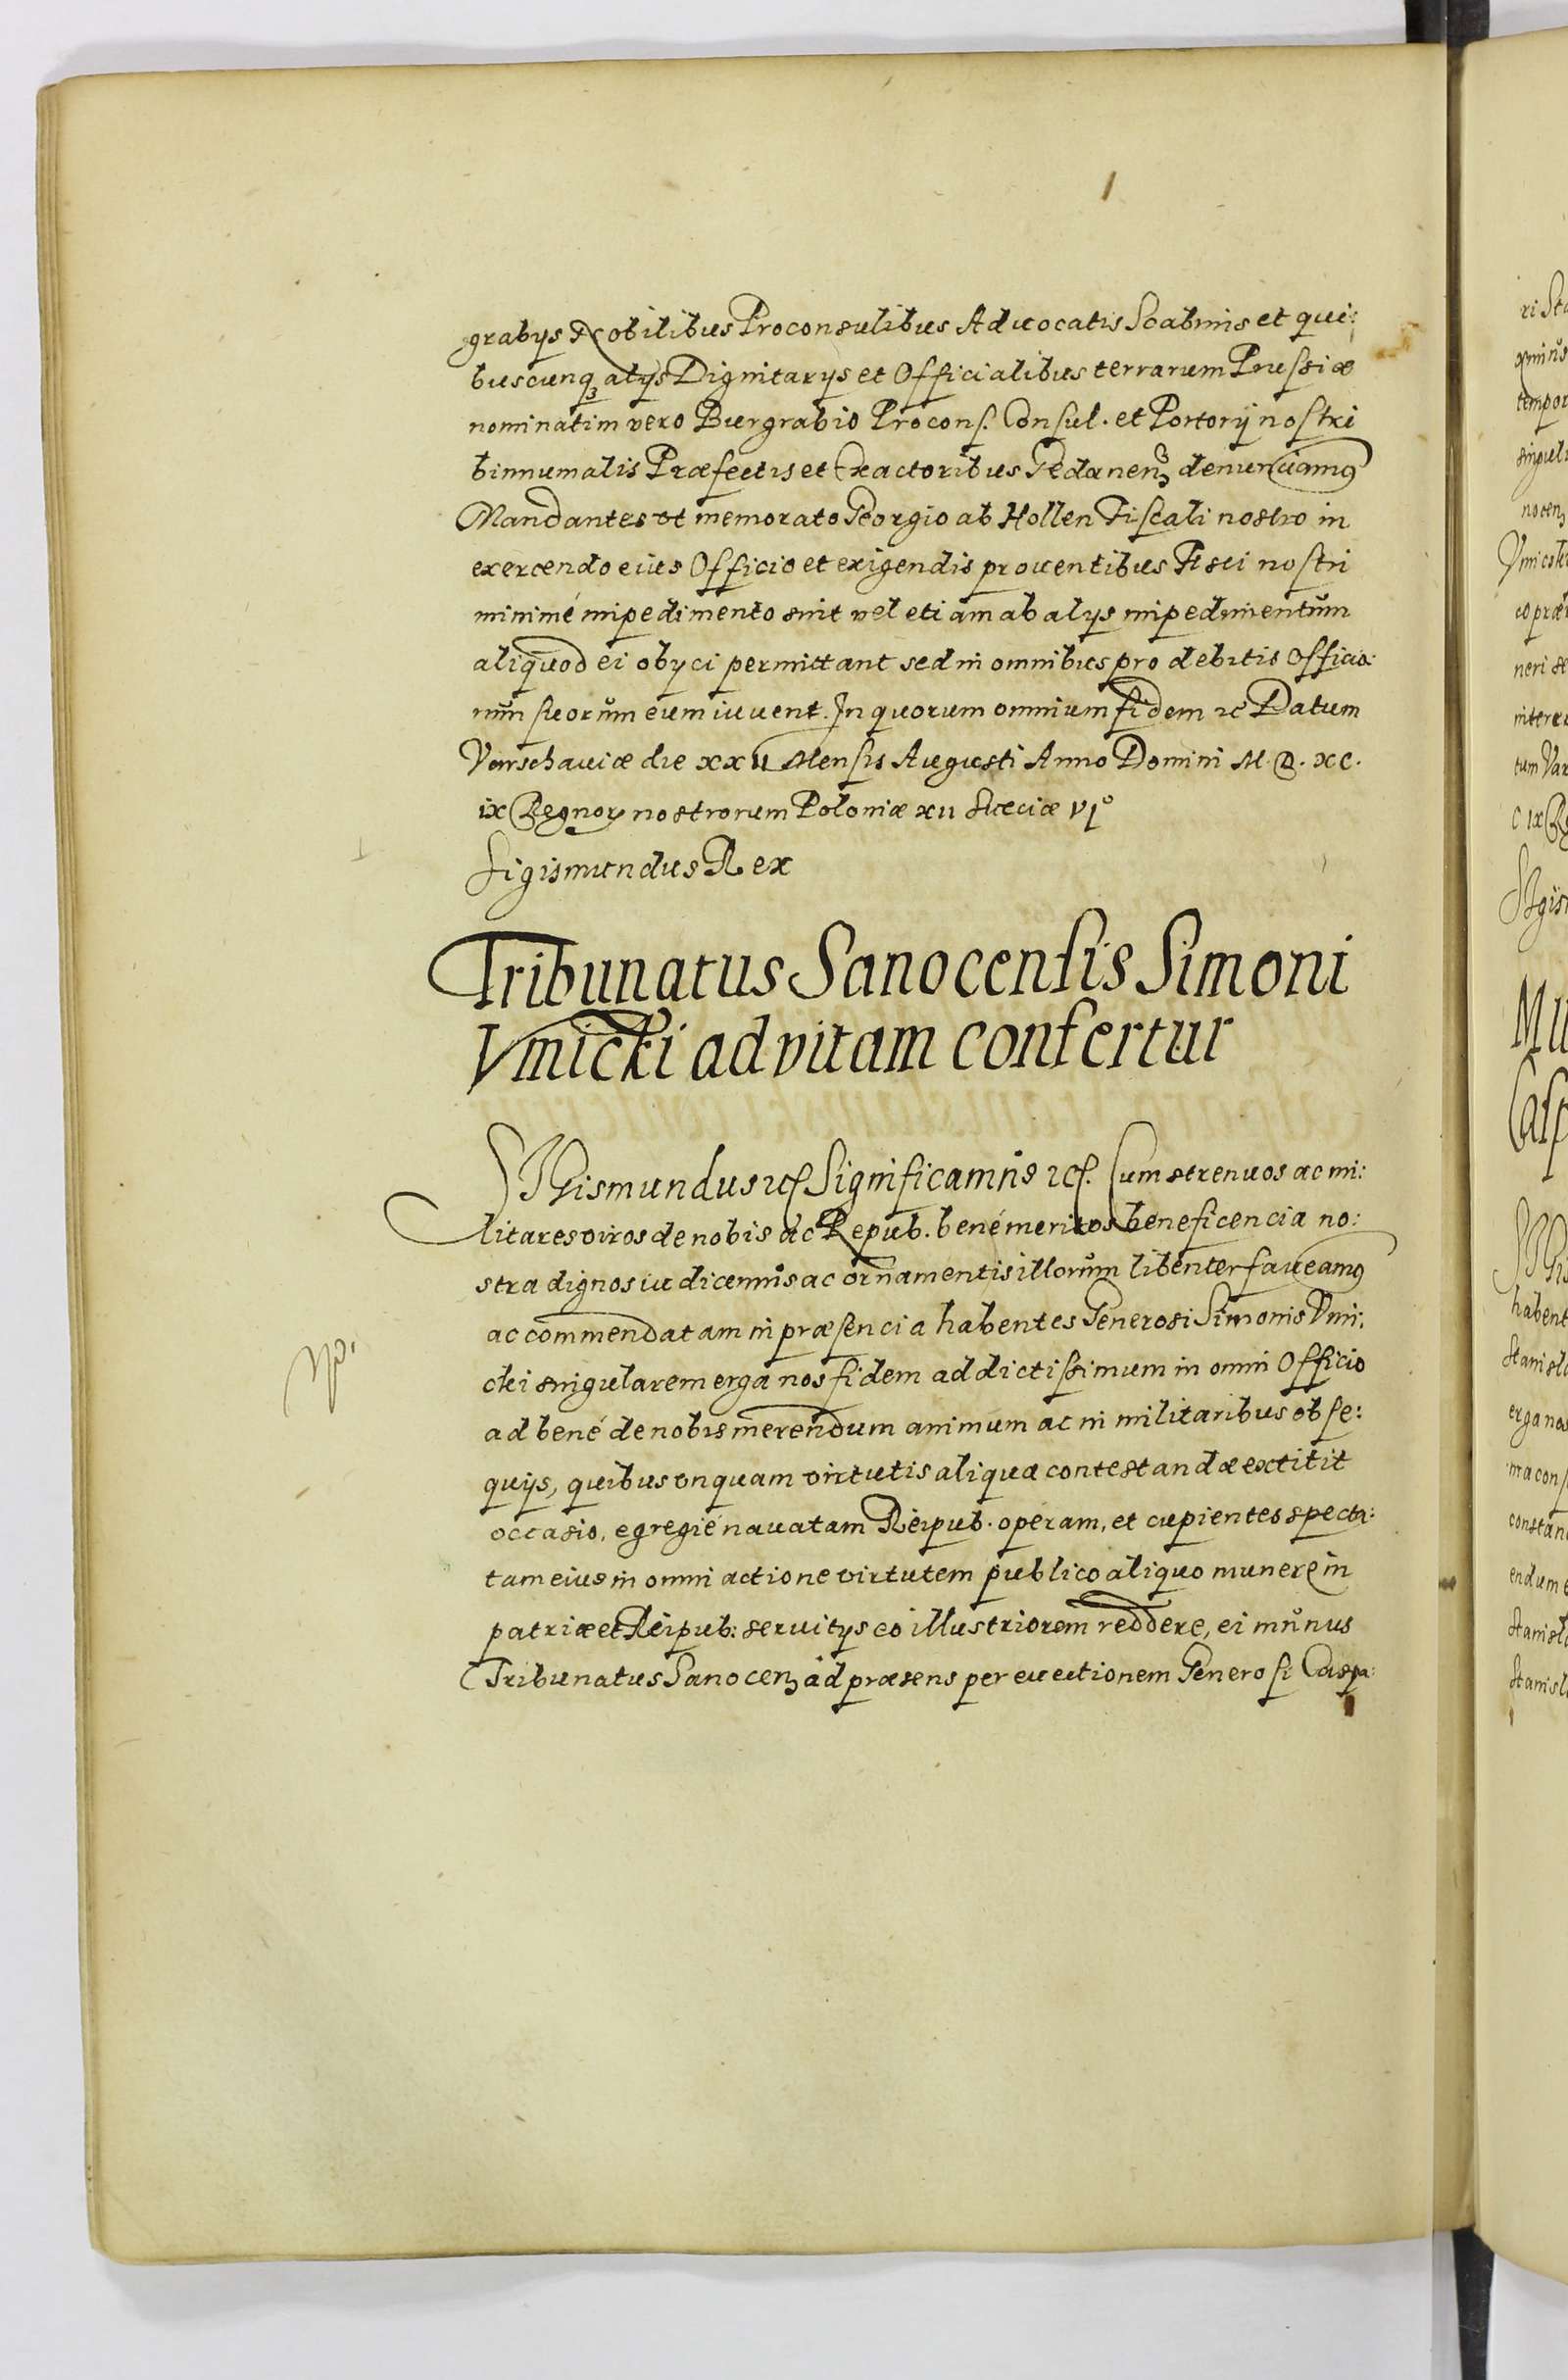 grabys Nobilibus Proconsulibus Advocatis Scabinis et qui:
buscunq₃ alys Dignitarys et Officialibus terrarum Prussiæ
nominatim vero Burgrabio Procons. Consul. et Portorij nostri
binnumalis Præfectis et Exactoribus Gedanen₃ denunciamus
Mandantes ut memorato Georgio ab Hollen Fiscali nostro in
exercendo eius Officio et exigendis proventibus Fisci nostri
minimé impedimento sint vel etiam ab alys impedimentum
aliquod ei obyci permittant sed in omnibus pro debitis Officio:
rum suorum eum iuvent. In quorum omnium fidem &c Datum
Varschaviæ die XXII Mensis Augusti Anno Domini M.D.XC.
IX Regnor nostrorum Poloniæ XII Sueciæ VI°
Sigismundus Rex
Tribunatus Sanocensis Simoni
Vmicki ad vitam confertur
SIgismundus &c Significamus &c. Cum strenuos ac mi:
litares viros de nobis ac Repub. bené meritos beneficencia no:
stra dignos iudicemus ac ornamentis illorum libenter faveamus
ac commendatam in præsencia habentes Generosi Simonis Vmi:
cki singularem erga nos fidem addictissimum in omni Officio
ad bené de nobis merendum animum ac in militaribus obse:
quijs, quibus unquam virtutis aliquæ contestandæ extitit
occasio, egregié navatam Reipub. operam, et cupientes specta:
tam eius in omni actione virtutem publico aliquo munere in
patriæ et Reipub: servitys eo illustriorem reddere, ei munus
Tribunatus Sanocen₃ ad præsens per evectionem Generosi Caspa: